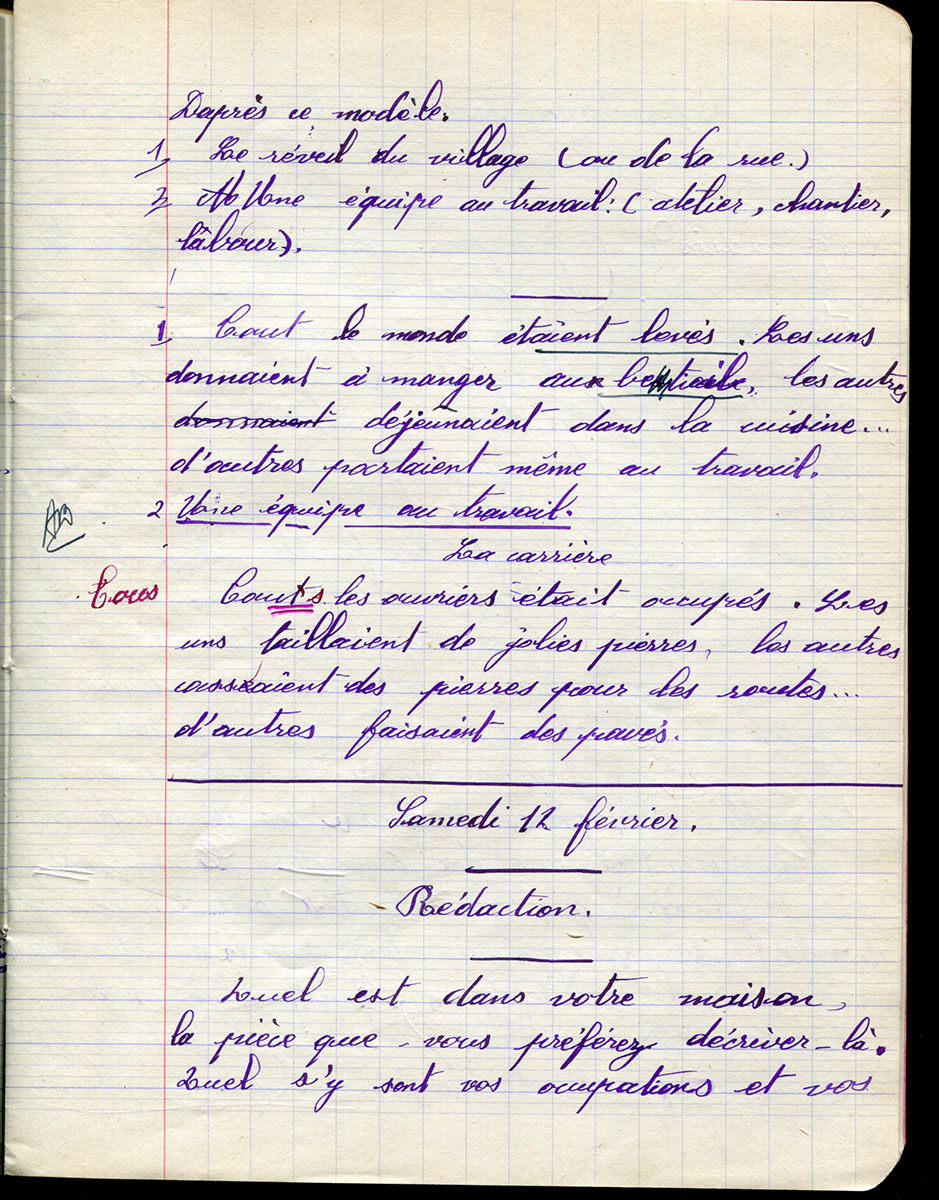 Daprès ce modèle.
1, Le réveil du village (ou de la rue.)
2, Une équipe au travail: (atelier, chantier,
lâbour).
1, Tout le monde étaient levés. Les uns
donnaient à manger aux bestiale, les autres
donnaient déjeûnaient dans la cuisine...
d'autres partaient même au travail.
2 Une équipe au travail.
La carrière
Tous Touts les ouvriers était occupés. Les
uns taillaient de jolies pierres, les autres
casseaient des pierres pour les routes...
d'autres faisaient des pavés.
Samedi 12 février.
Rédaction.
Quel est dans votre maison,
la pièce que vous préférez décriver-là.
Quel s'y sont vos ocupations et vos